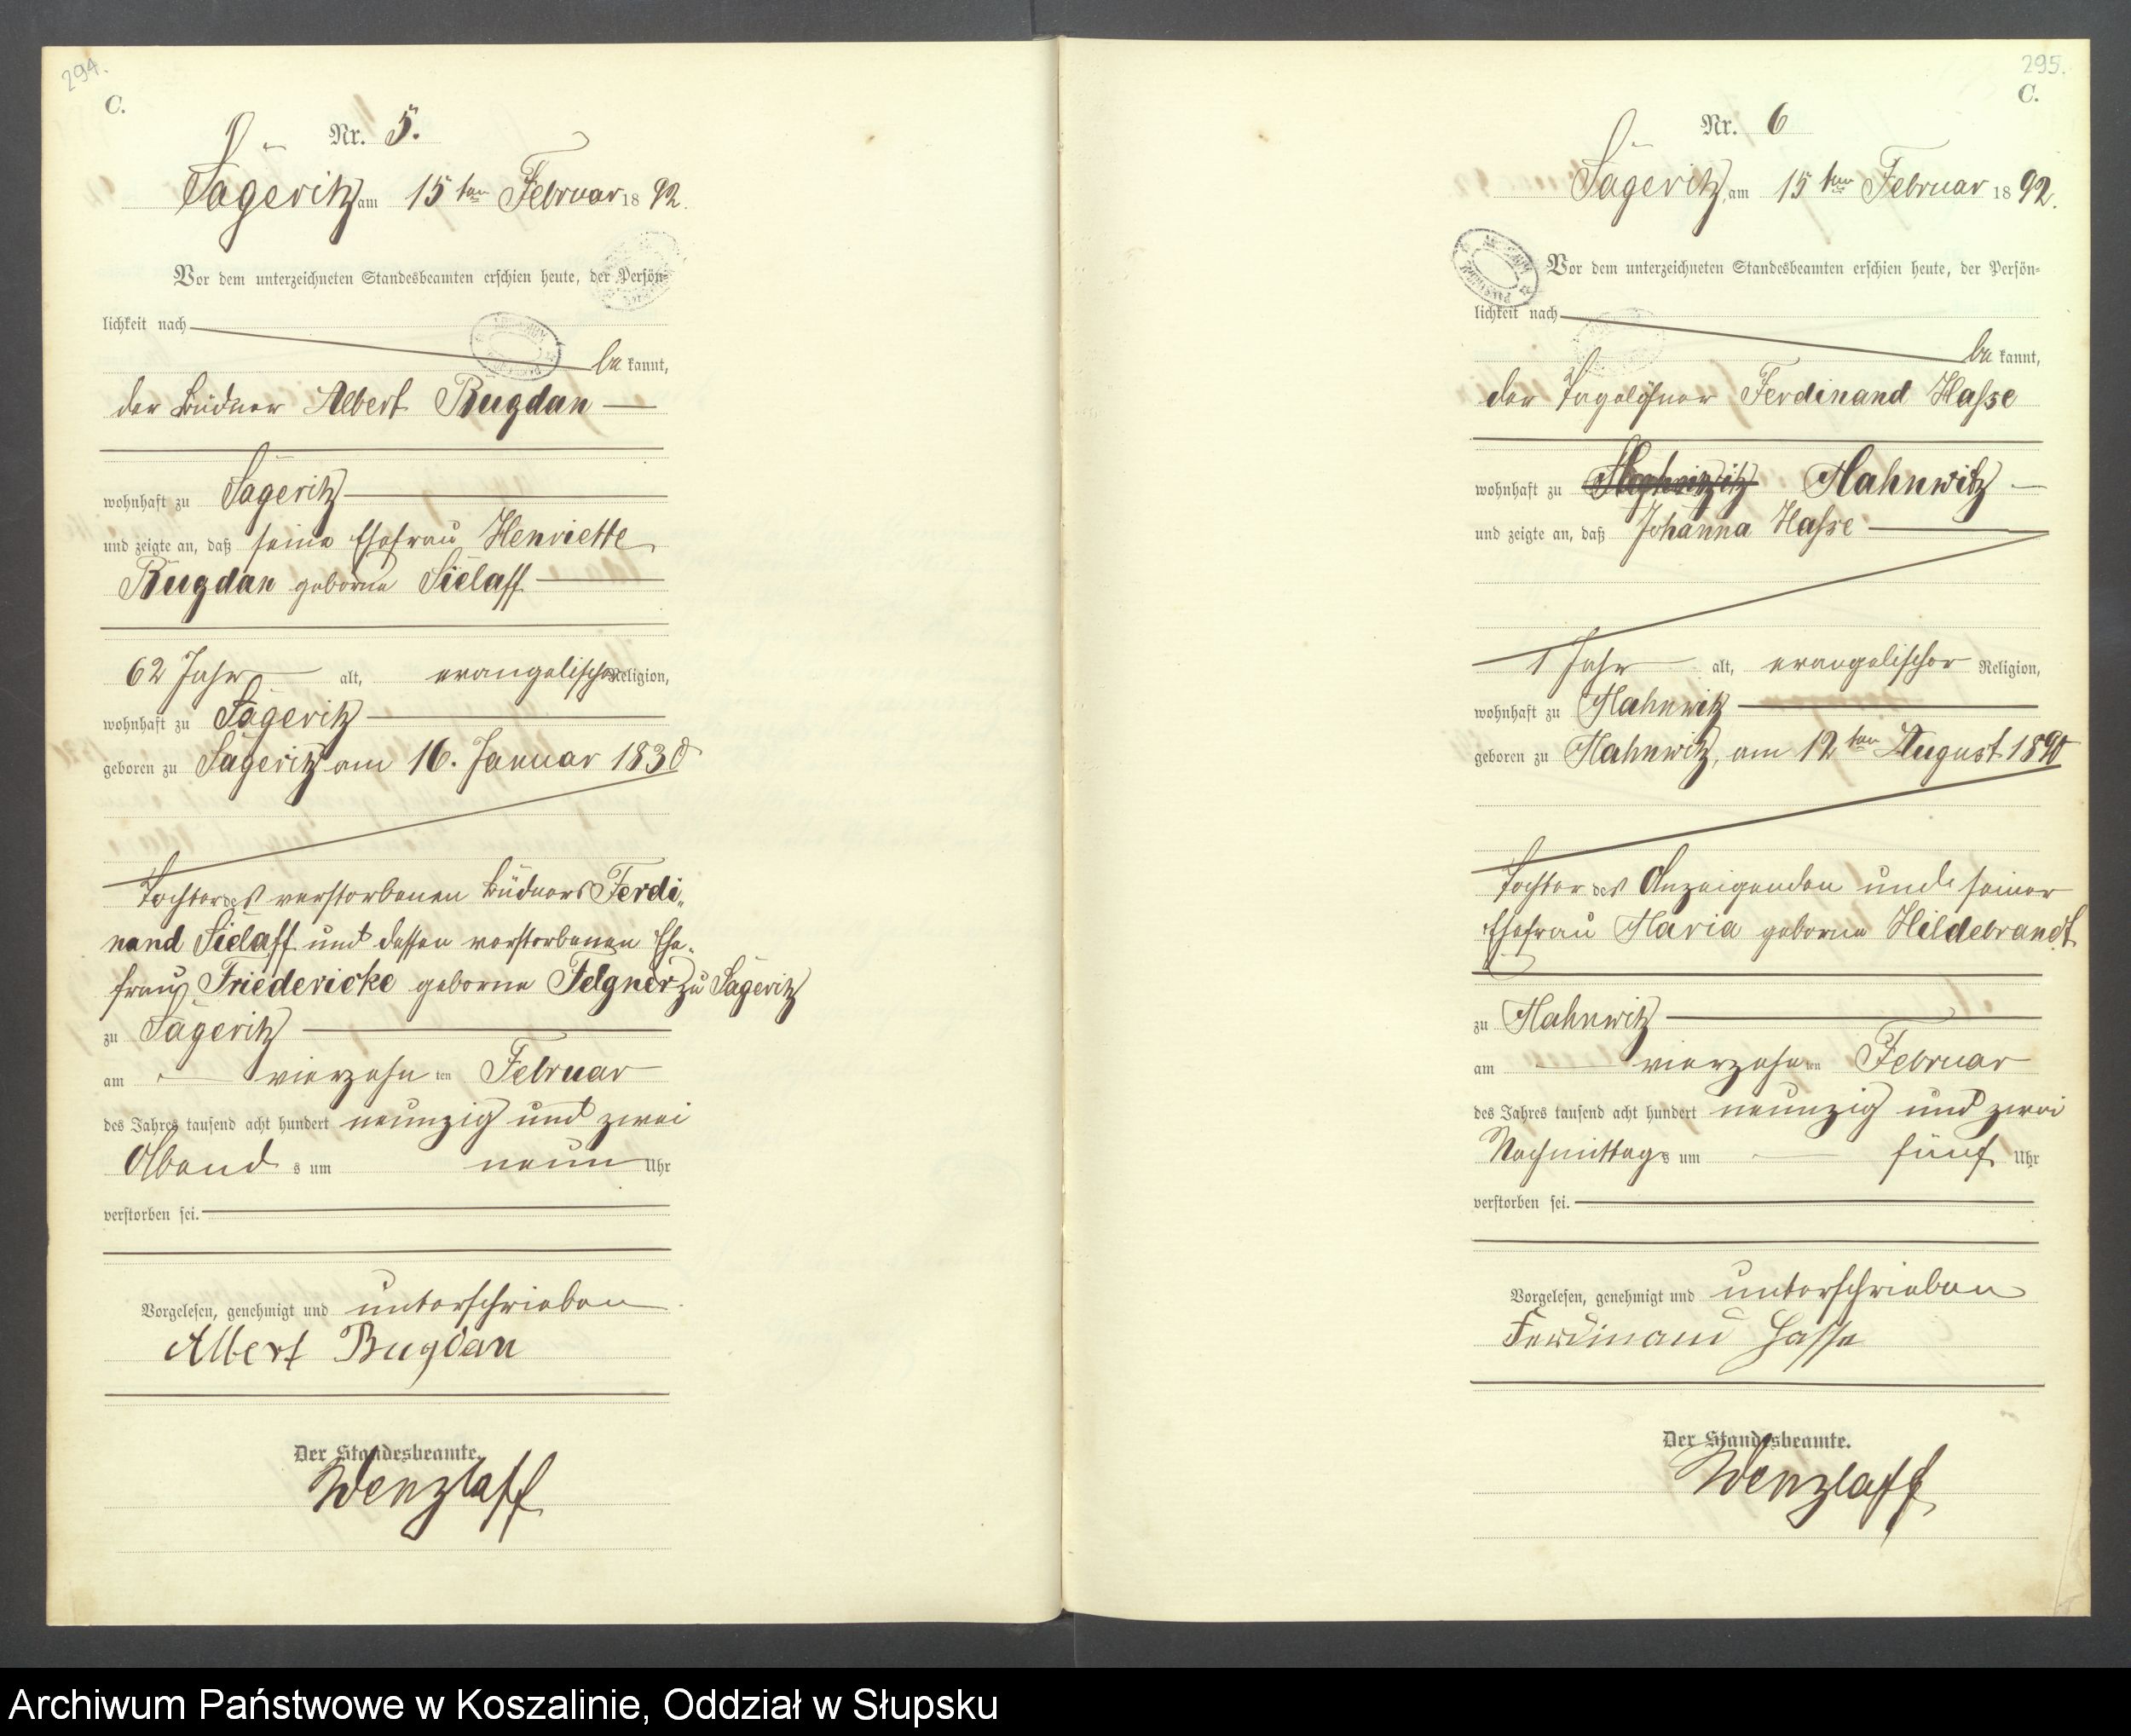 294.
C.
Nr. 5.
Sägeritz am 15ten Februar 1892.
Vor dem unterzeichneten Standesbeamten erschien heute, der Persön=
lichkeit nach
be kannt,
der Büdner Albert Bugdan
wohnhaft zu Sägeritz
und zeigte an, daß seine Ehefrau Henriette
Bugdan geborne Sielaff
62 Jahr alt, evangelischer Religion,
wohnhaft zu Sägeritz
geboren zu Sägeritz am 16. Januar 1830
Tochter des verstorbenen Büdners Ferdi„
nand Sielaff und dessen verstorbenen Ehe„
frau Friedericke geborne Felgner zu Sägeritz
zu Sägeritz
am vierzehn ten Februar
des Jahres tausend acht hundert neunzig und zwei
Abend s um neun Uhr
verstorben sei.
Vorgelesen, genehmigt und unterschrieben
Albert Bugdan
Der Standesbeamte.
Wenzlaff
295.
C.
Nr. 6
Sägeritz, am 15ten Februar 1892.
Vor dem unterzeichneten Standesbeamten erschien heute, der Persön=
lichkeit nach
be kannt,
der Tagelöhner Ferdinand Hasse
wohnhaft zu Mahnwitz
und zeigte an, daß Johanna Hasse
1 Jahr alt, evangelischer Religion,
wohnhaft zu Mahnwitz
geboren zu Mahnwitz, am 12ten August 1890
Tochter des Anzeigenden und seiner
Ehefrau Maria geborne Hildebrandt
zu Mahnwitz
am vierzehn ten Februar
des Jahres tausend acht hundert neunzig und zwei
Nachmittags um fünf Uhr
verstorben sei.
Vorgelesen, genehmigt und unterschrieben
Ferdinand Hasse
Der Standesbeamte.
Wenzlaff
Archiwum Państwowe w Koszalinie, Oddział w Słupsku